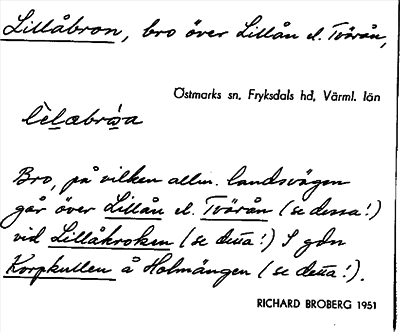 Lillåbron, bro över Lillån el. Tvärån,
Östmarks sn, Fryksdals hd, Värml. län
Bro, på vilken allm. landsvägen
går över Lillån el. Tvärån (se dessa!)
vid Lillåkroken (se detta!) S gdn
Korpkullen å Holmängen (se detta!).
RICHARD BROBERG 1951